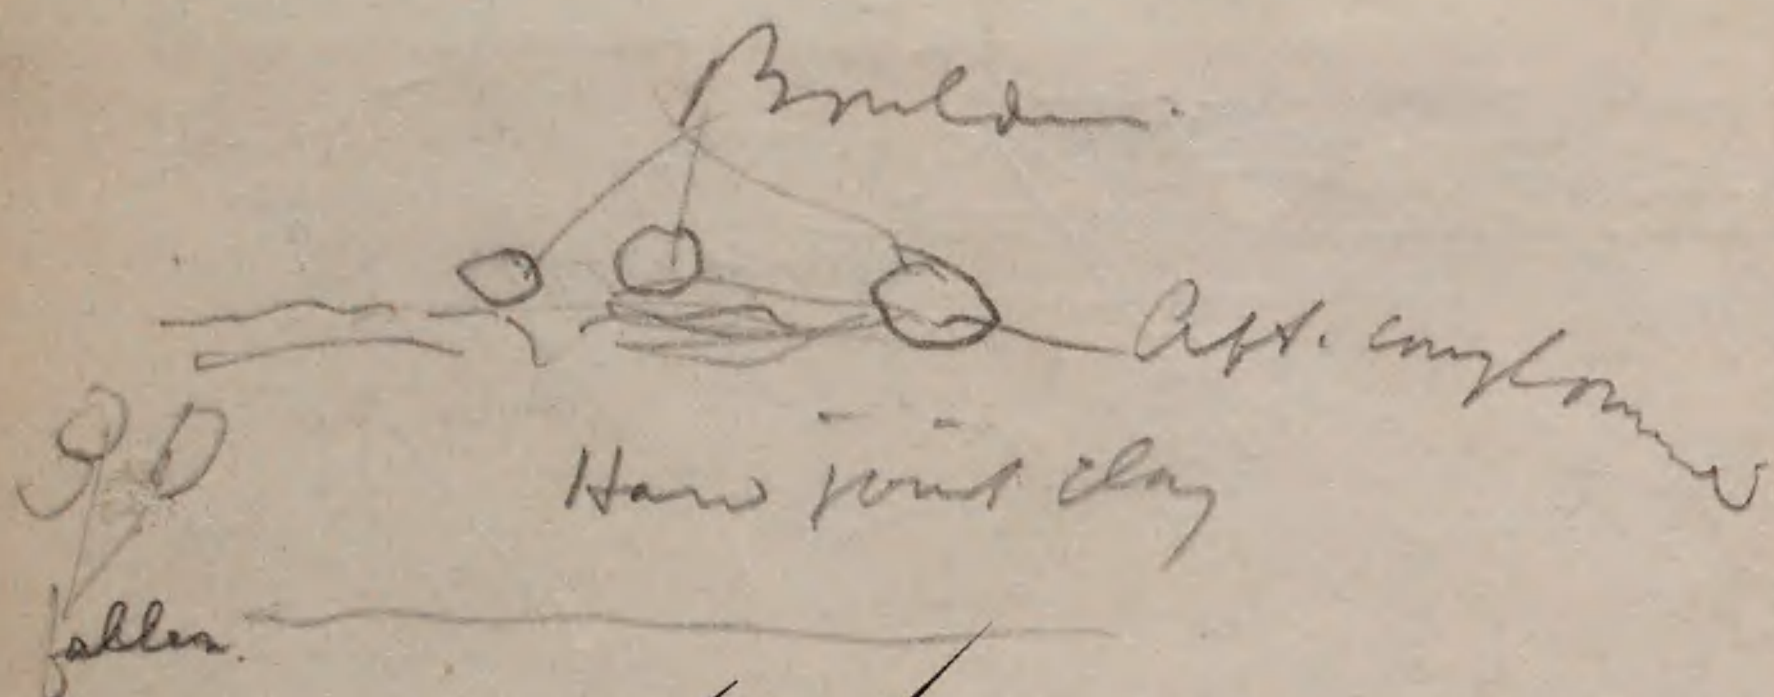 Boulders.
Aft. conglomerate
Hard joint clay
fallen.